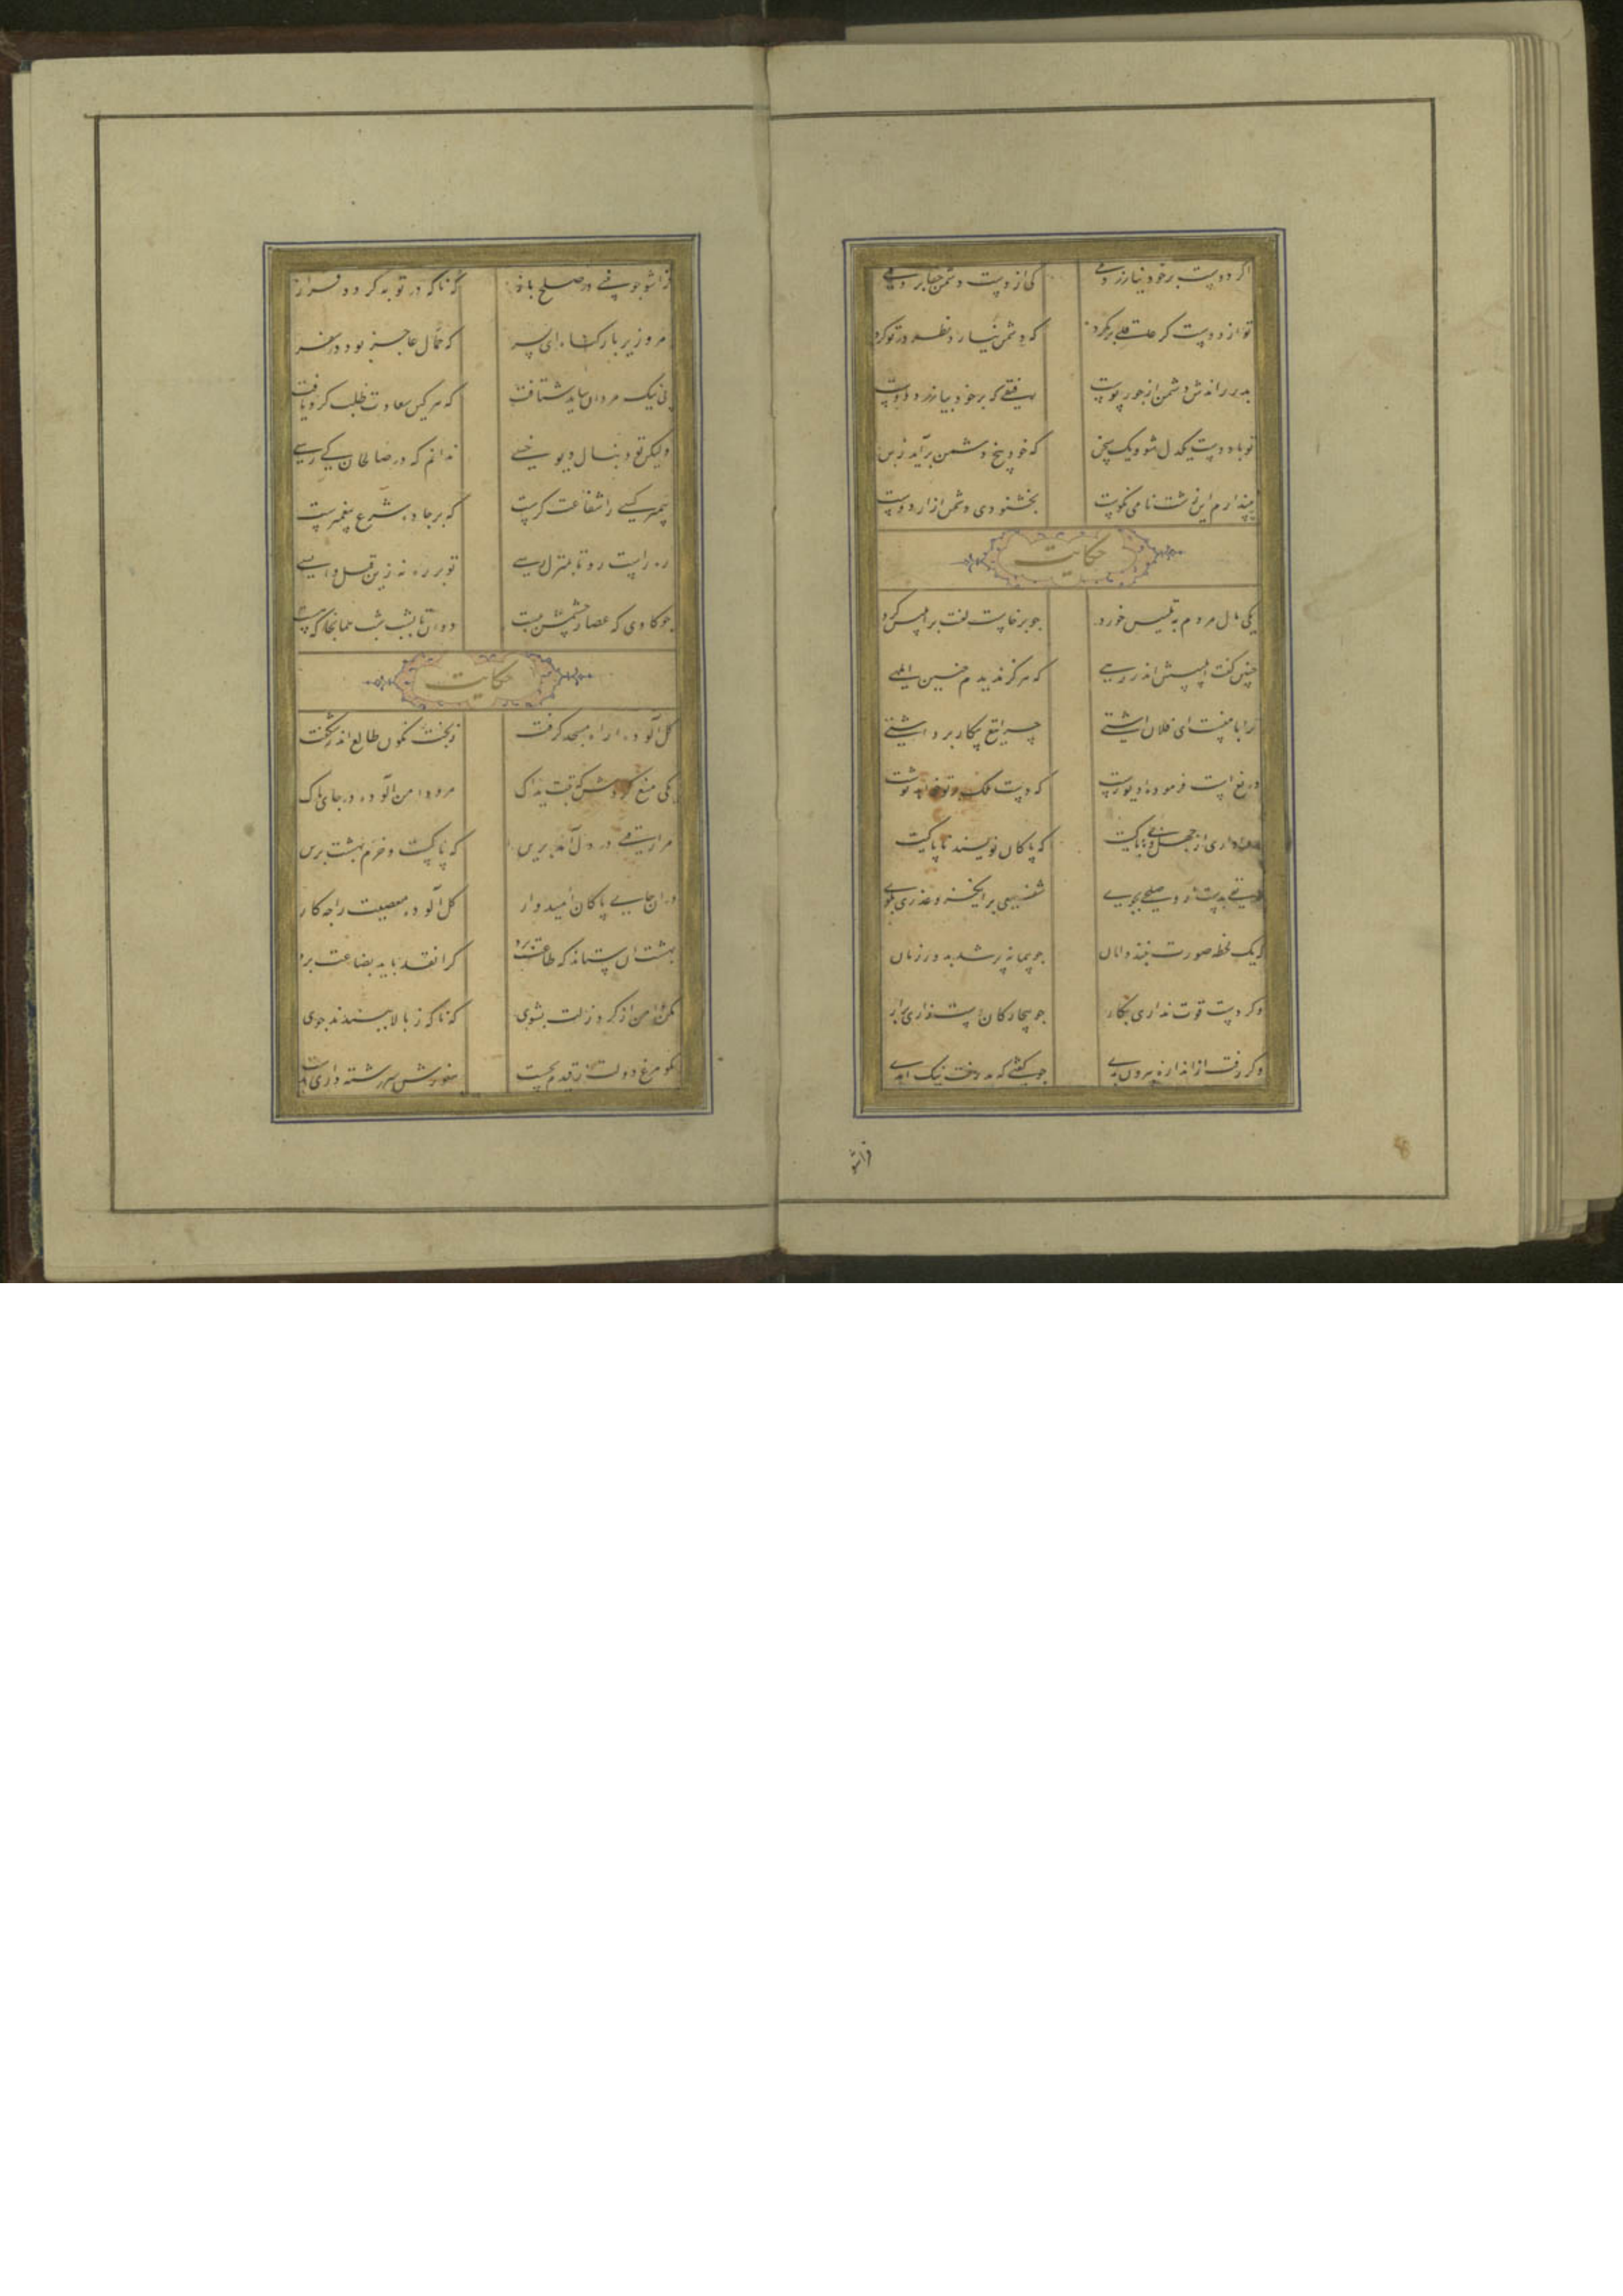 اگر دوست بر خود نیازردمی کی از دوست دشمن جفا بردمی
تو از دوست گر عاقلی بر مگرد که دشمن نیارد نظر در تو کرد
بدرد راندش دشمن از جور پوست رفیقی که بر خود بیازرد دوست
تو با دوست یکدل شو و یک سخن که خود بیخ دشمن برآید ز بن
نپندارم این زشت نامی نکوست بخشنودی دشمن آزار دوست
حکایت
یکی مال مردم به تلبیس خورد چو برخاست لعنت بر ابلیس کرد
چنین گفت ابلیسش اندر رهی که هرگز ندیدم چنین ابلهی
ترا با منست ای فلان آشتی چرا تیغ پیکار برداشتی
دریغ است فرموده دیو زشت که دست ملک بر تو خواهد نوشت
روا داری از جهل و ناباکیت که پاکان نویسند ناپاکیت
طریقی بدست آر و صلحی بجوی شفیعی برانگیز و عذری بگوی
که یک لحظه صورت نبندد امان چو پیمانه پر شد به دور زمان
وگر دست قوت نداری بکار چو بیچارگان دست زاری برآر
وگر رفت از اندازه بیرون بدی چو گفتی که بد رفت نیک آمدی
فراشو
فراشو چو بینی در صلح باز که ناگه در توبه گردد فراز
مرو زیر بار گناه ای پسر که حمال عاجز بود در سفر
پی نیک مردان بباید شتافت که هر کس سعادت طلب کرد یافت
ولیکن تو دنبال دیو خسی ندانم که در صالحان کی رسی
پیمبر کسی را شفاعت گرست که بر جاده شرع پیغمبرست
ره راست رو تا بمنزل رسی تو بر ره نه زین قبل واپسی
چو گاوی که عصار چشمش ببست دوان تا بشب شب همانجا که هست
حکایت
گل آلوده راه مسجد گرفت ز بخت نگون طالع اندر شگفت
یکی منع کردش که تبت یداک مرو دامن آلوده در جای پاک
مرا رقتی در دل آمد برین که پاکست و خرم بهشت برین
در آن جای پاکان امیدوار گل آلوده معصیت را چه کار
بهشت آن ستاند که طاعت برد کرا نقد باید بضاعت برد
مکن دامن از گرد زلت بشوی که ناگه ز بالا ببندند جوی
مگو مرغ دولت ز قیدم بجست هنوزش سر رشته داری بدست